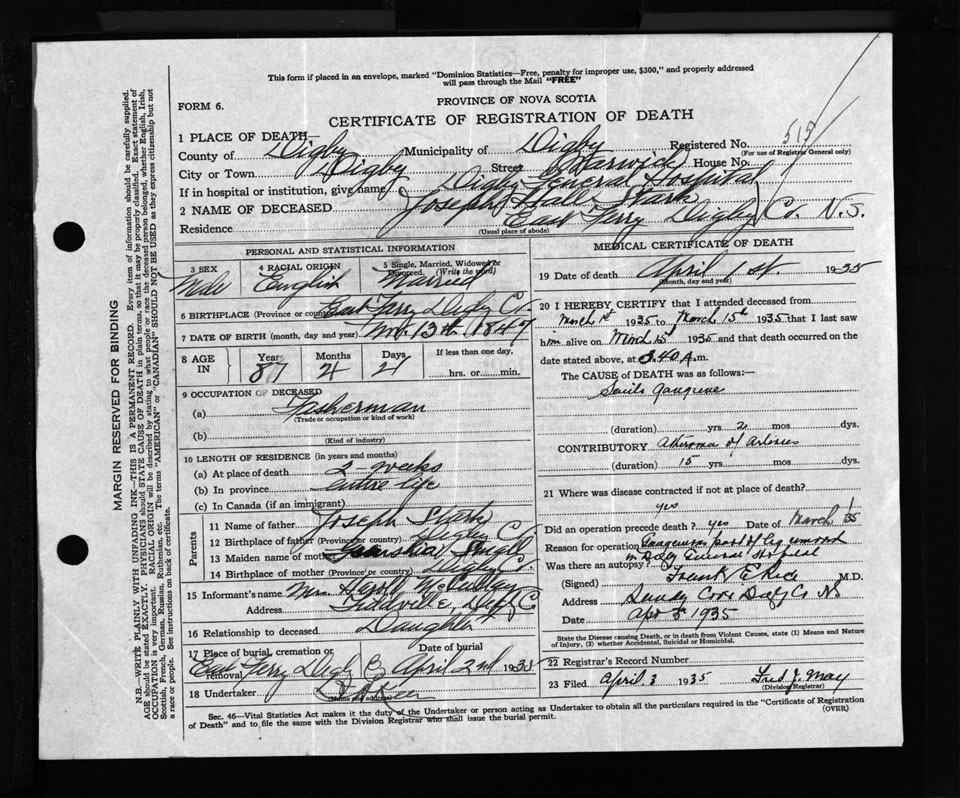 This form if placed in an envelope, marked "Dominion Statistics—Free, penalty for improper use, $300," and properly addressed
will pass through the Mail "FREE"
FORM 6.
PROVINCE OF NOVA SCOTIA
CERTIFICATE OF REGISTRATION OF DEATH
1 PLACE OF DEATH—
County of Digby Municipality of Digby Registered No. 515
(For use of Registrar General only)
City or Town Digby Street Warwick House No.
If in hospital or institution, give name Digby General Hospital
2 NAME OF DECEASED Joseph Hall Stark
Residence East Ferry Digby Co. N.S.
(Usual place of abode)
PERSONAL AND STATISTICAL INFORMATION
3 SEX
Male
4 RACIAL ORIGIN
English
5 Single, Married, Widowed or
Divorced. (Write the word)
Married
6 BIRTHPLACE (Province or country) East Ferry Digby Co.
7 DATE OF BIRTH (month, day and year) Nov. 13th 1847
8 AGE IN
Years Months Days If less than one day,
87 4 hrs. or min.
9 OCCUPATION OF DECEASED
(a) Fisherman
(Trade or occupation or kind of work)
(b)
(Kind of industry)
10 LENGTH OF RESIDENCE (in years and months)
(a) At place of death 2-weeks
(b) In province entire life
(c) In Canada (if an immigrant)
Parents
11 Name of father Joseph Stark
12 Birthplace of father (Province or country) Digby Co.
13 Maiden name of mother
14 Birthplace of mother (Province or country) Digby Co.
15 Informant's name Mrs.
Address Tiddville, Digby Co
16 Relationship to deceased Daughter
17 Place of burial, cremation or removal Date of burial
East Ferry Digby Co April 2nd 1935
18 Undertaker
(Name and address)
MEDICAL CERTIFICATE OF DEATH
19 Date of death April 1st. 1935
(Month, day and year)
20 I HEREBY CERTIFY that I attended deceased from
March 1st 1935 to March 15th 1935 that I last saw
him alive on March 15 1935 and that death occurred on
date stated above, at 3.40 A.m.
The CAUSE of DEATH was as follows:—
Senile gangrene
(duration) yrs. 2 mos. dys.
CONTRIBUTORY Atheroma of arteries
(duration) 15 yrs. mos. dys.
21 Where was disease contracted if not at place of death?
yes
Did an operation precede death? yes Date of March 1/35
Reason for operation Gangrenous part of leg removed
in Digby General Hospital
Was there an autopsy?
(Signed) Frank E Rice M.D.
Address Sandy Cove Digby Co NS
Date Apr 3 1935
State the Disease causing Death, or in death from Violent Causes, state (1) Means and Nature
of Injury, (2) whether Accidental, Suicidal or Homicidal.
22 Registrar's Record Number
23 Filed April 3 1935 Fred J. May
(Division Registrar)
Sec. 46—Vital Statistics Act makes it the duty of the Undertaker or person acting as Undertaker to obtain all the particulars required in the "Certificate of Registration
of Death" and to file the same with the Division Registrar who shall issue the burial permit.
(OVER)
MARGIN RESERVED FOR BINDING
N.B.—WRITE PLAINLY WITH UNFADING INK—THIS IS A PERMANENT RECORD. Every item of information should be carefully supplied.
AGE should be stated EXACTLY. PHYSICIANS should STATE CAUSE OF DEATH in plain terms, so that it may be properly classified. Exact statement of
OCCUPATION is very important. RACIAL ORIGIN will be described by stating to what people or race the deceased person belonged, whether English, Irish,
Scottish, French, German, Russian, Ruthenian, etc. The terms "AMERICAN" or "CANADIAN" SHOULD NOT BE USED as they express citizenship but not
a race or people. See instructions on back of certificate.